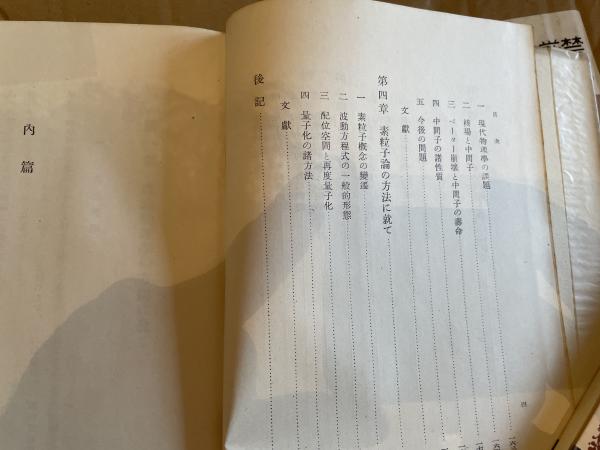 目次
一 現代物理學の課題
二 核場と中間子
三 ベーター崩壞と中間子の壽命
四 中間子の諸性質
五 今後の問題
文獻
第四章 素粒子論の方法に就て
一 素粒子概念の變遷
二 波動方程式の一般的形態
三 配位空間と再度量子化
四 量子化の諸方法
文獻
後記
四
內篇